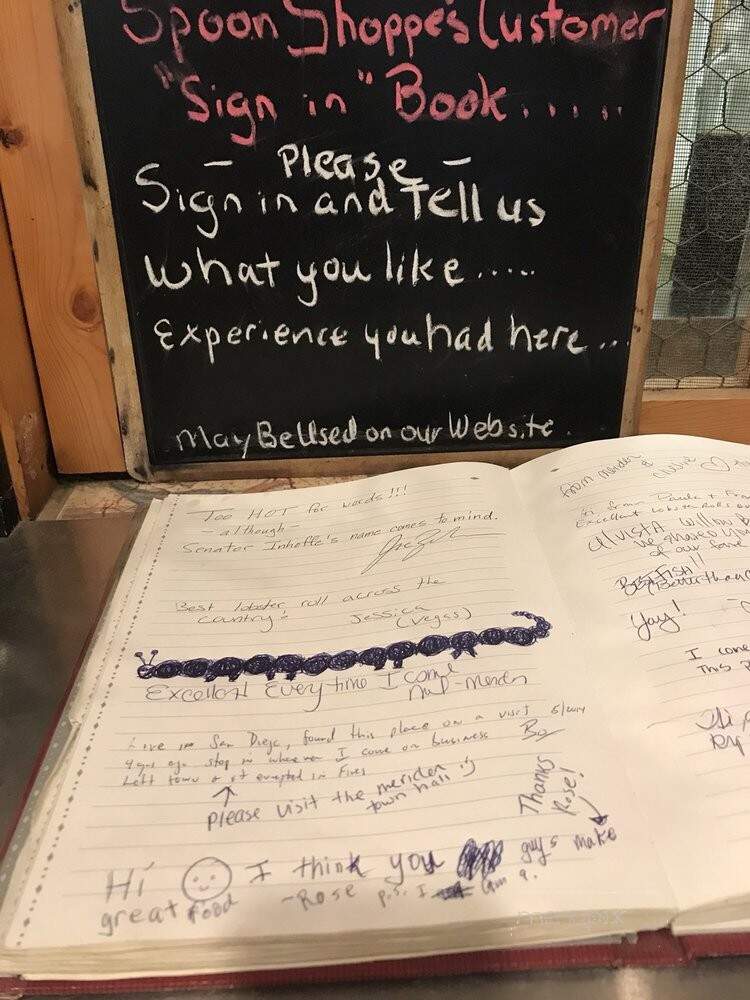 Spoon Shoppe's Customer
"Sign in" Book.....
- Please -
Sign in and Tell us
what you like.....
Experience you had here...
May Be Used on our Website.
Too HOT for words!!!
- although -
Senator Inhoffe's name comes to mind.
Best lobster roll across the
country! Jessica
(Vegas)
Excellent Everytime I come
Live in San Diego, found this place on a visit
4 yrs ago stop in whenever I come on business
Left town & it erupted in Fires
↑
Please visit the meriden
town hall :)
Thanks
Rose!
Hi I think you guys make
great food -Rose p.s. I am 9.
from meriden
Excellent
we shared
of our
Best FISH!!
Better than
Yay!
I come
This